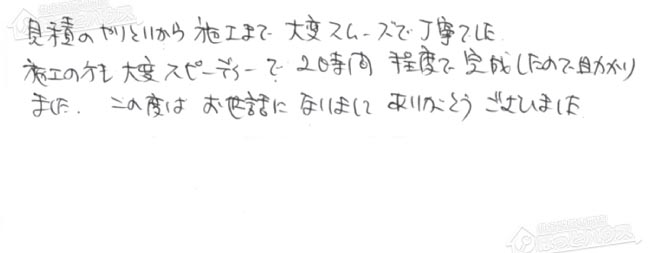 見積のやりとりから 施工まで 大変スムーズで丁寧でした
施工の方も 大変スピーディーで 2時間 程度で 完成したので助かり
ました. この度は お世話に なりまして ありがとう ございました